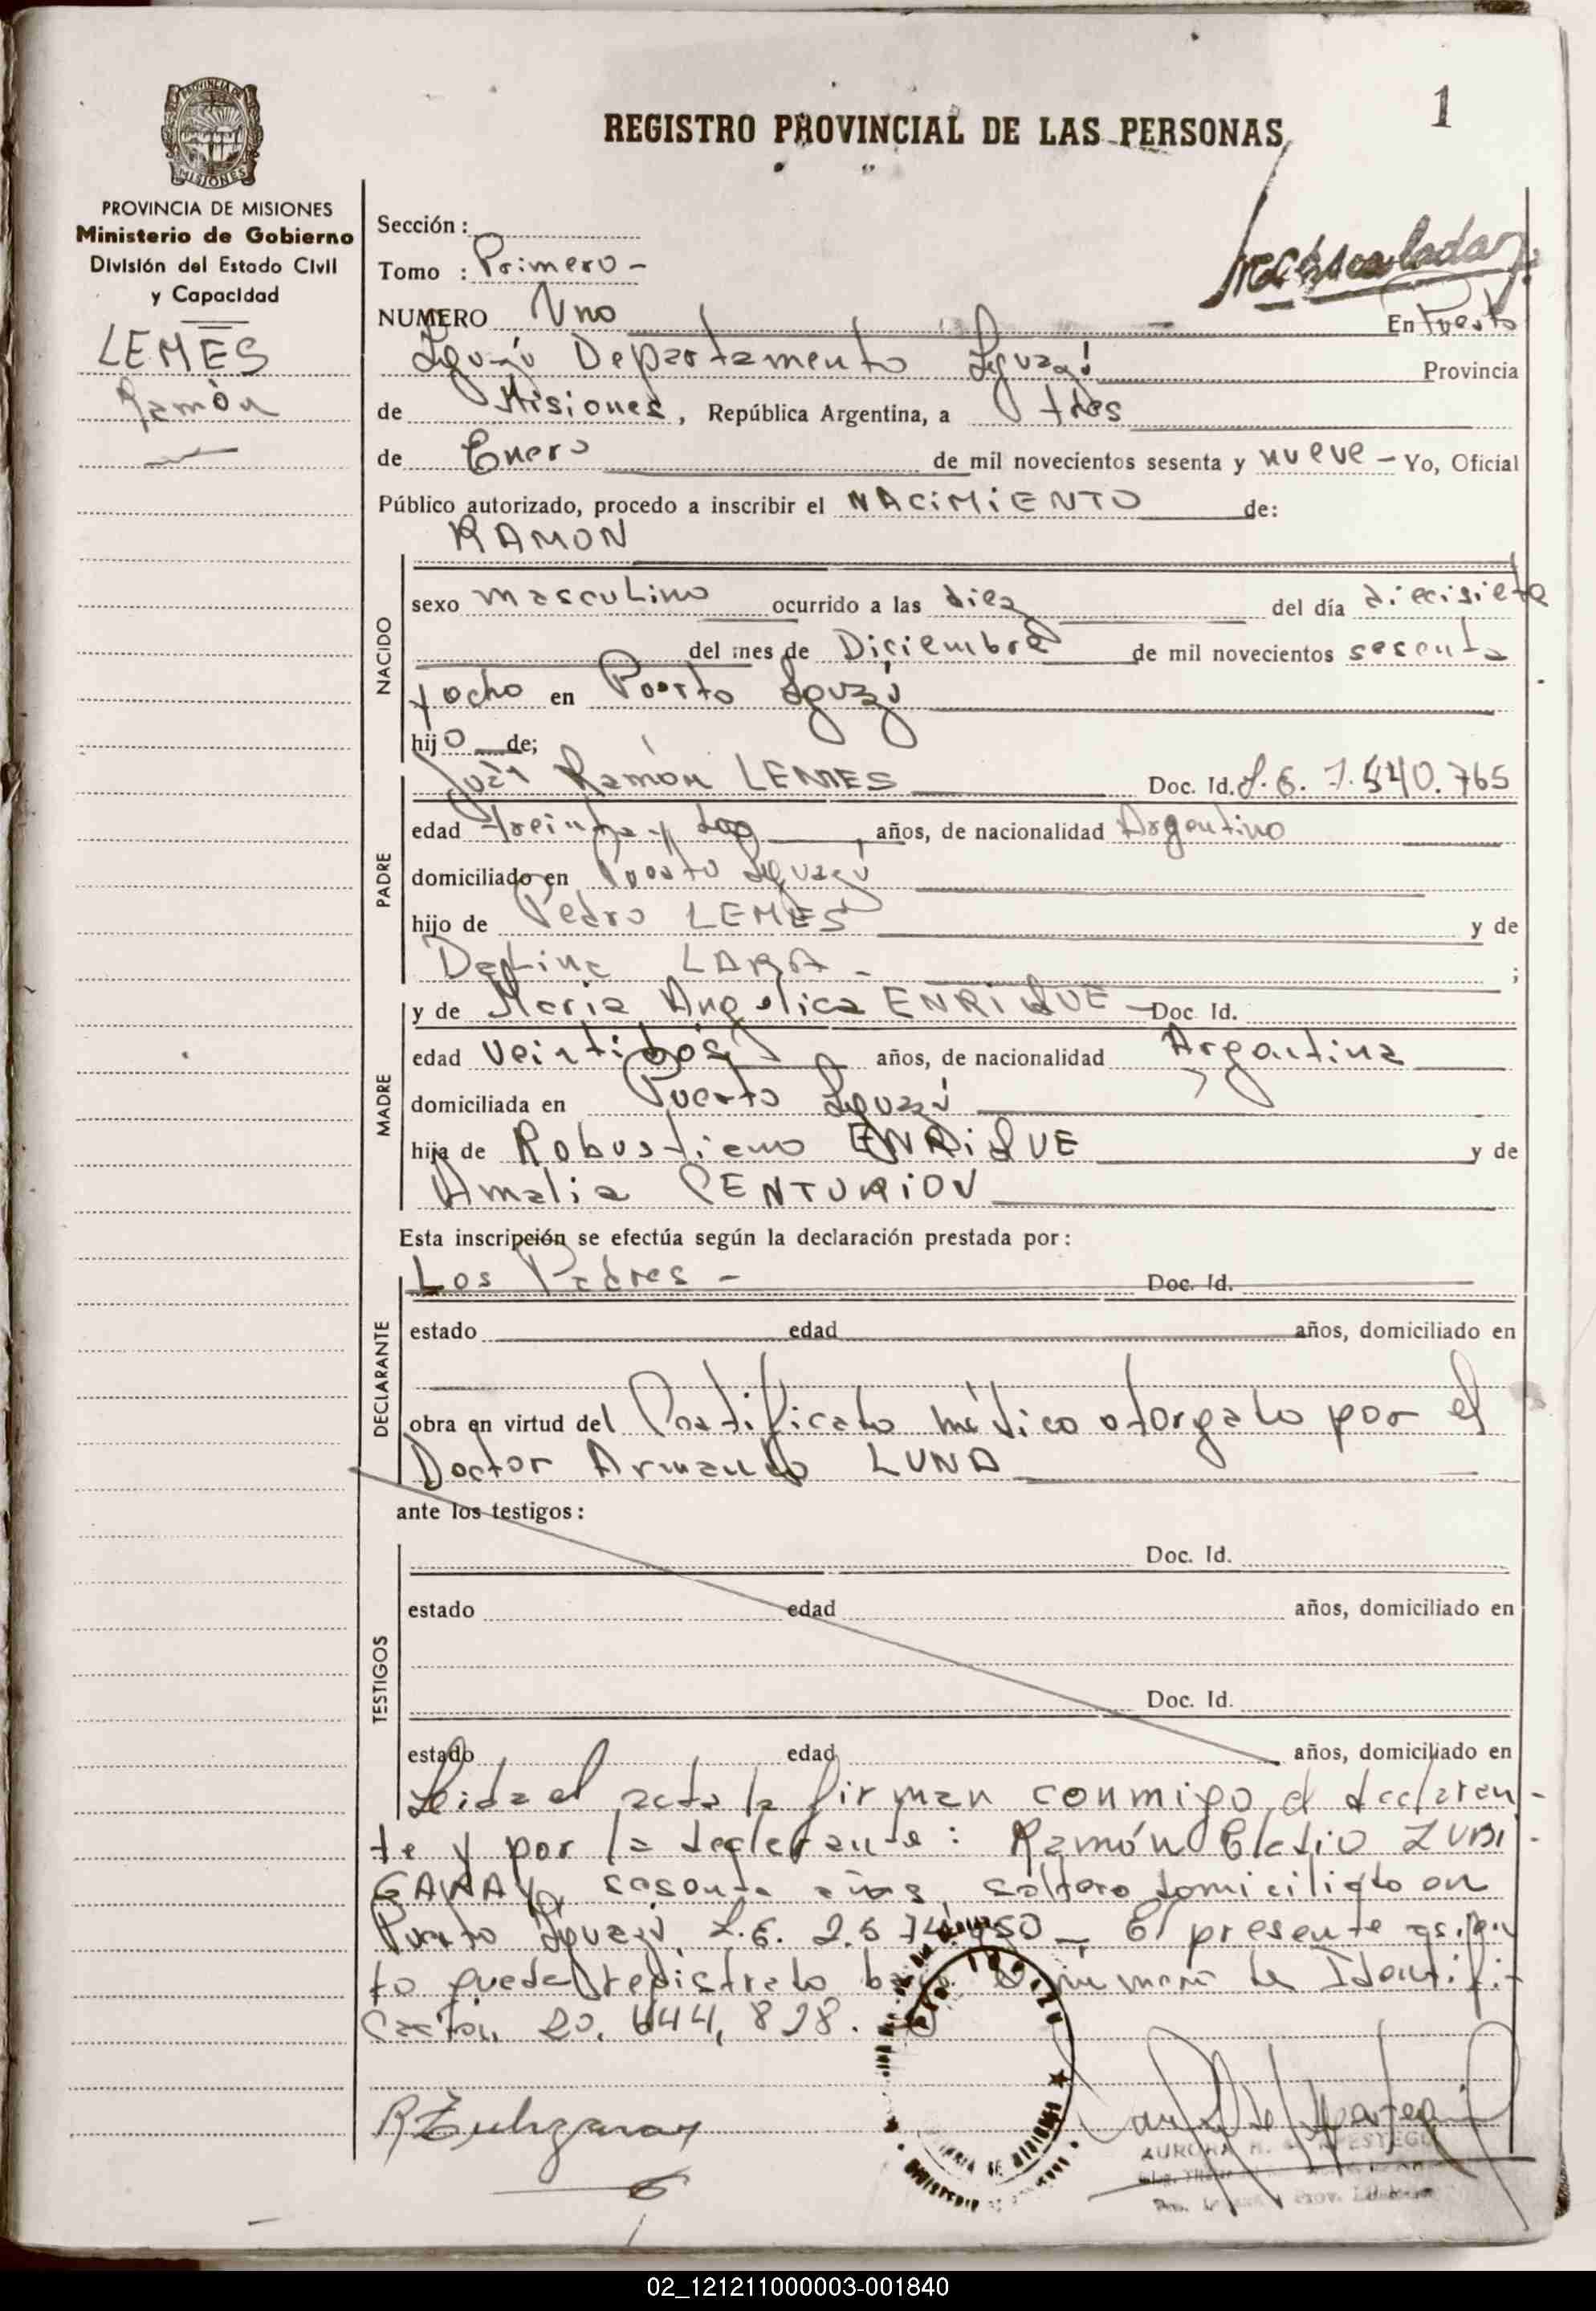 1
REGISTRO PROVINCIAL DE LAS PERSONAS
PROVINCIA DE MISIONES
Ministerio de Gobierno
División del Estado Civil
y Capacidad
LEMES
Ramòn
Sección :
Tomo : Primero -
NUMERO Uno En Puerto
Iguazú Departamento Iguazú Provincia
de Misiones, República Argentina, a tres
de Enero de mil novecientos sesenta y nueve - Yo, Oficial
Público autorizado, procedo a inscribir el NACiMiENTO de:
RAMON
NACIDO
sexo masculino ocurrido a las diez del día diecisiete
del mes de Diciembre de mil novecientos sesenta
y ocho en Puerto Iguazú
hijo de;
PADRE
Juàn Ramón LEMES Doc. Id. L.E. 7.540.765
edad treinta y dos años, de nacionalidad Argentino
domiciliado en Puerto Iguazú
hijo de Pedro LEMES y de
Delfina LARA - ;
MADRE
y de Maria Angelica ENRiQUE - Doc Id.
edad veintidós años, de nacionalidad Argentina
domiciliada en Puerto Iguazú
hija de Robustiano ENRiQUE y de
Amalia CENTURiON
Esta inscripción se efectúa según la declaración prestada por:
DECLARANTE
Los Padres - Doc. Id.
estado edad años, domiciliado en
obra en virtud del Certificado médico otorgado por el
Doctor Armando LUNA
ante los testigos:
TESTIGOS
Doc. Id.
estado edad años, domiciliado en
Doc. Id.
estado edad años, domiciliado en
Leida el acta la firman conmigo el declaran-
te y por la declarante: Ramón Eladio ZUBI-
GARAY, sesenta años, soltero domiciliado en
Puerto Iguazú, L.E. 2.5 El presente asien
to queda registrado bajo el número de Identifi-
cación 20.644,828.
RZubigaray
AURORA
02_121211000003-001840